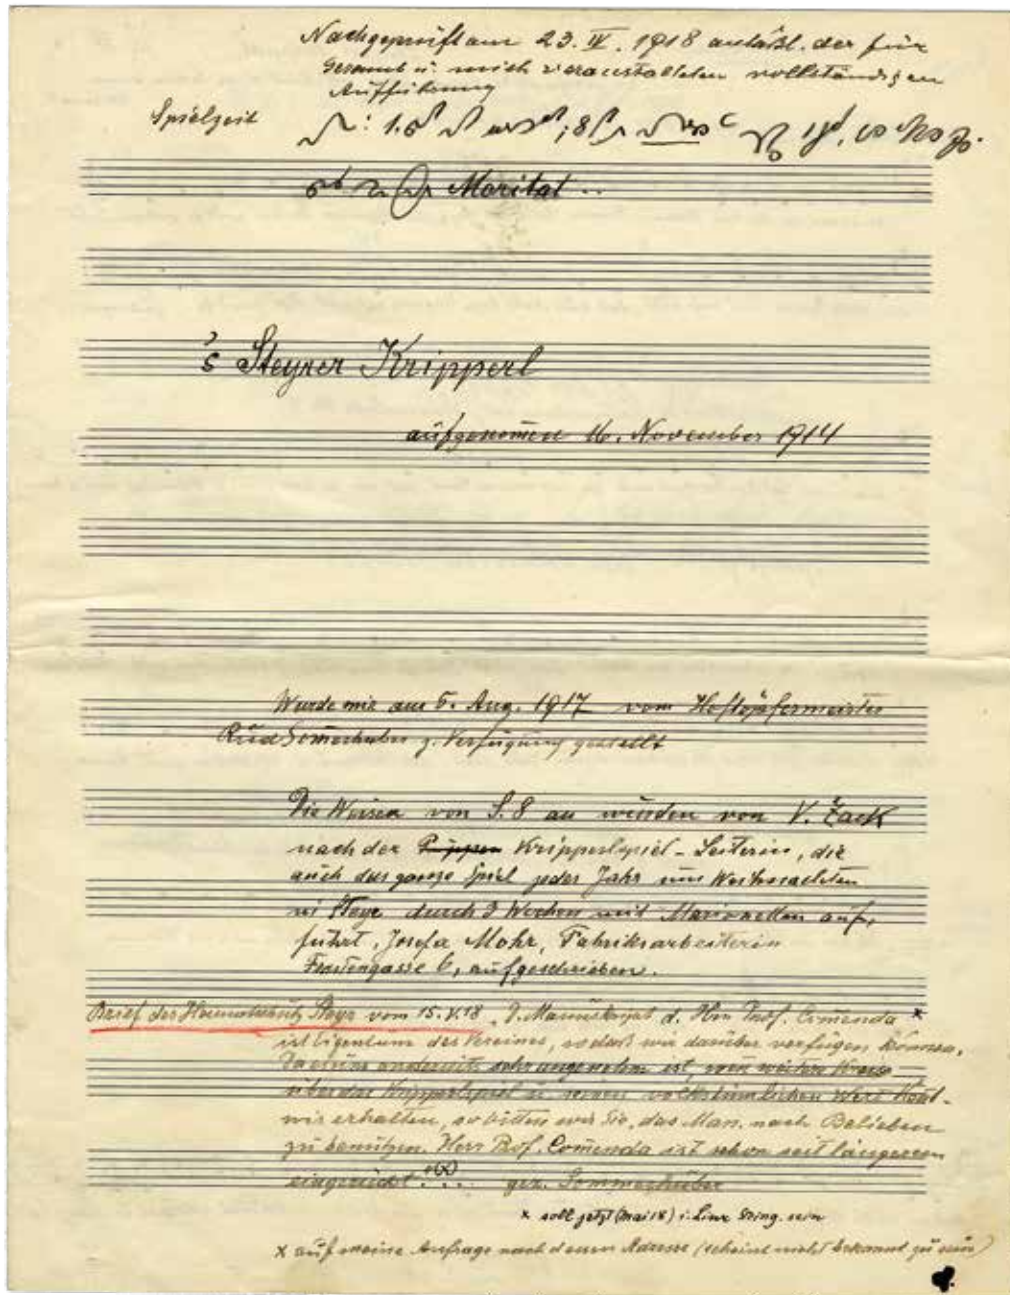 Nachgeprüft am 23. IV. 1918 anläßl. der für
Gesamt u. mich veranstalteten vollständigen
Aufführung
Spielzeit
Moritat
's Steyrer Kripperl
aufgenomen 16. November 1914
Wurde mir am 5. Aug. 1917 vom Hoftöpfermeister
Rud Somerhuber z. Verfügung gestellt
Die Weisen von S. 8 an würden von V. Zack
nach der Puppen Kripperlspiel-Leiterin, die
auch das ganze Spiel jedes Jahr um Weihnachten
in Steyr durch 3 Wochen mit Marionetten auf,
führt, Josefa Mohr, Fabriksarbeiterin
6, aufgeschrieben.
Brief des Heimatschutz Steyr vom 15. V. 18 D. Manuskript d. Hrn Prof. Comenda x
ist Eigentum des Vereines, sodaß wir darüber verfügen können.
Da es uns anderseits sehr angenehm ist, wen weitere Kreise
über das Kripperlspiel u. seinen volkstümlichen Wert
erhalten, so bitten wir Sie, das Man. nach Belieben
zu benützen. Herr Prof. Comenda ist schon seit längerem
eingerückt. +oo... gez. Sommerhuber
x soll jetzt (Mai 18) i. Linz sein
x auf meine Anfrage nach dessen Adresse (scheint nicht bekannt zu sein)